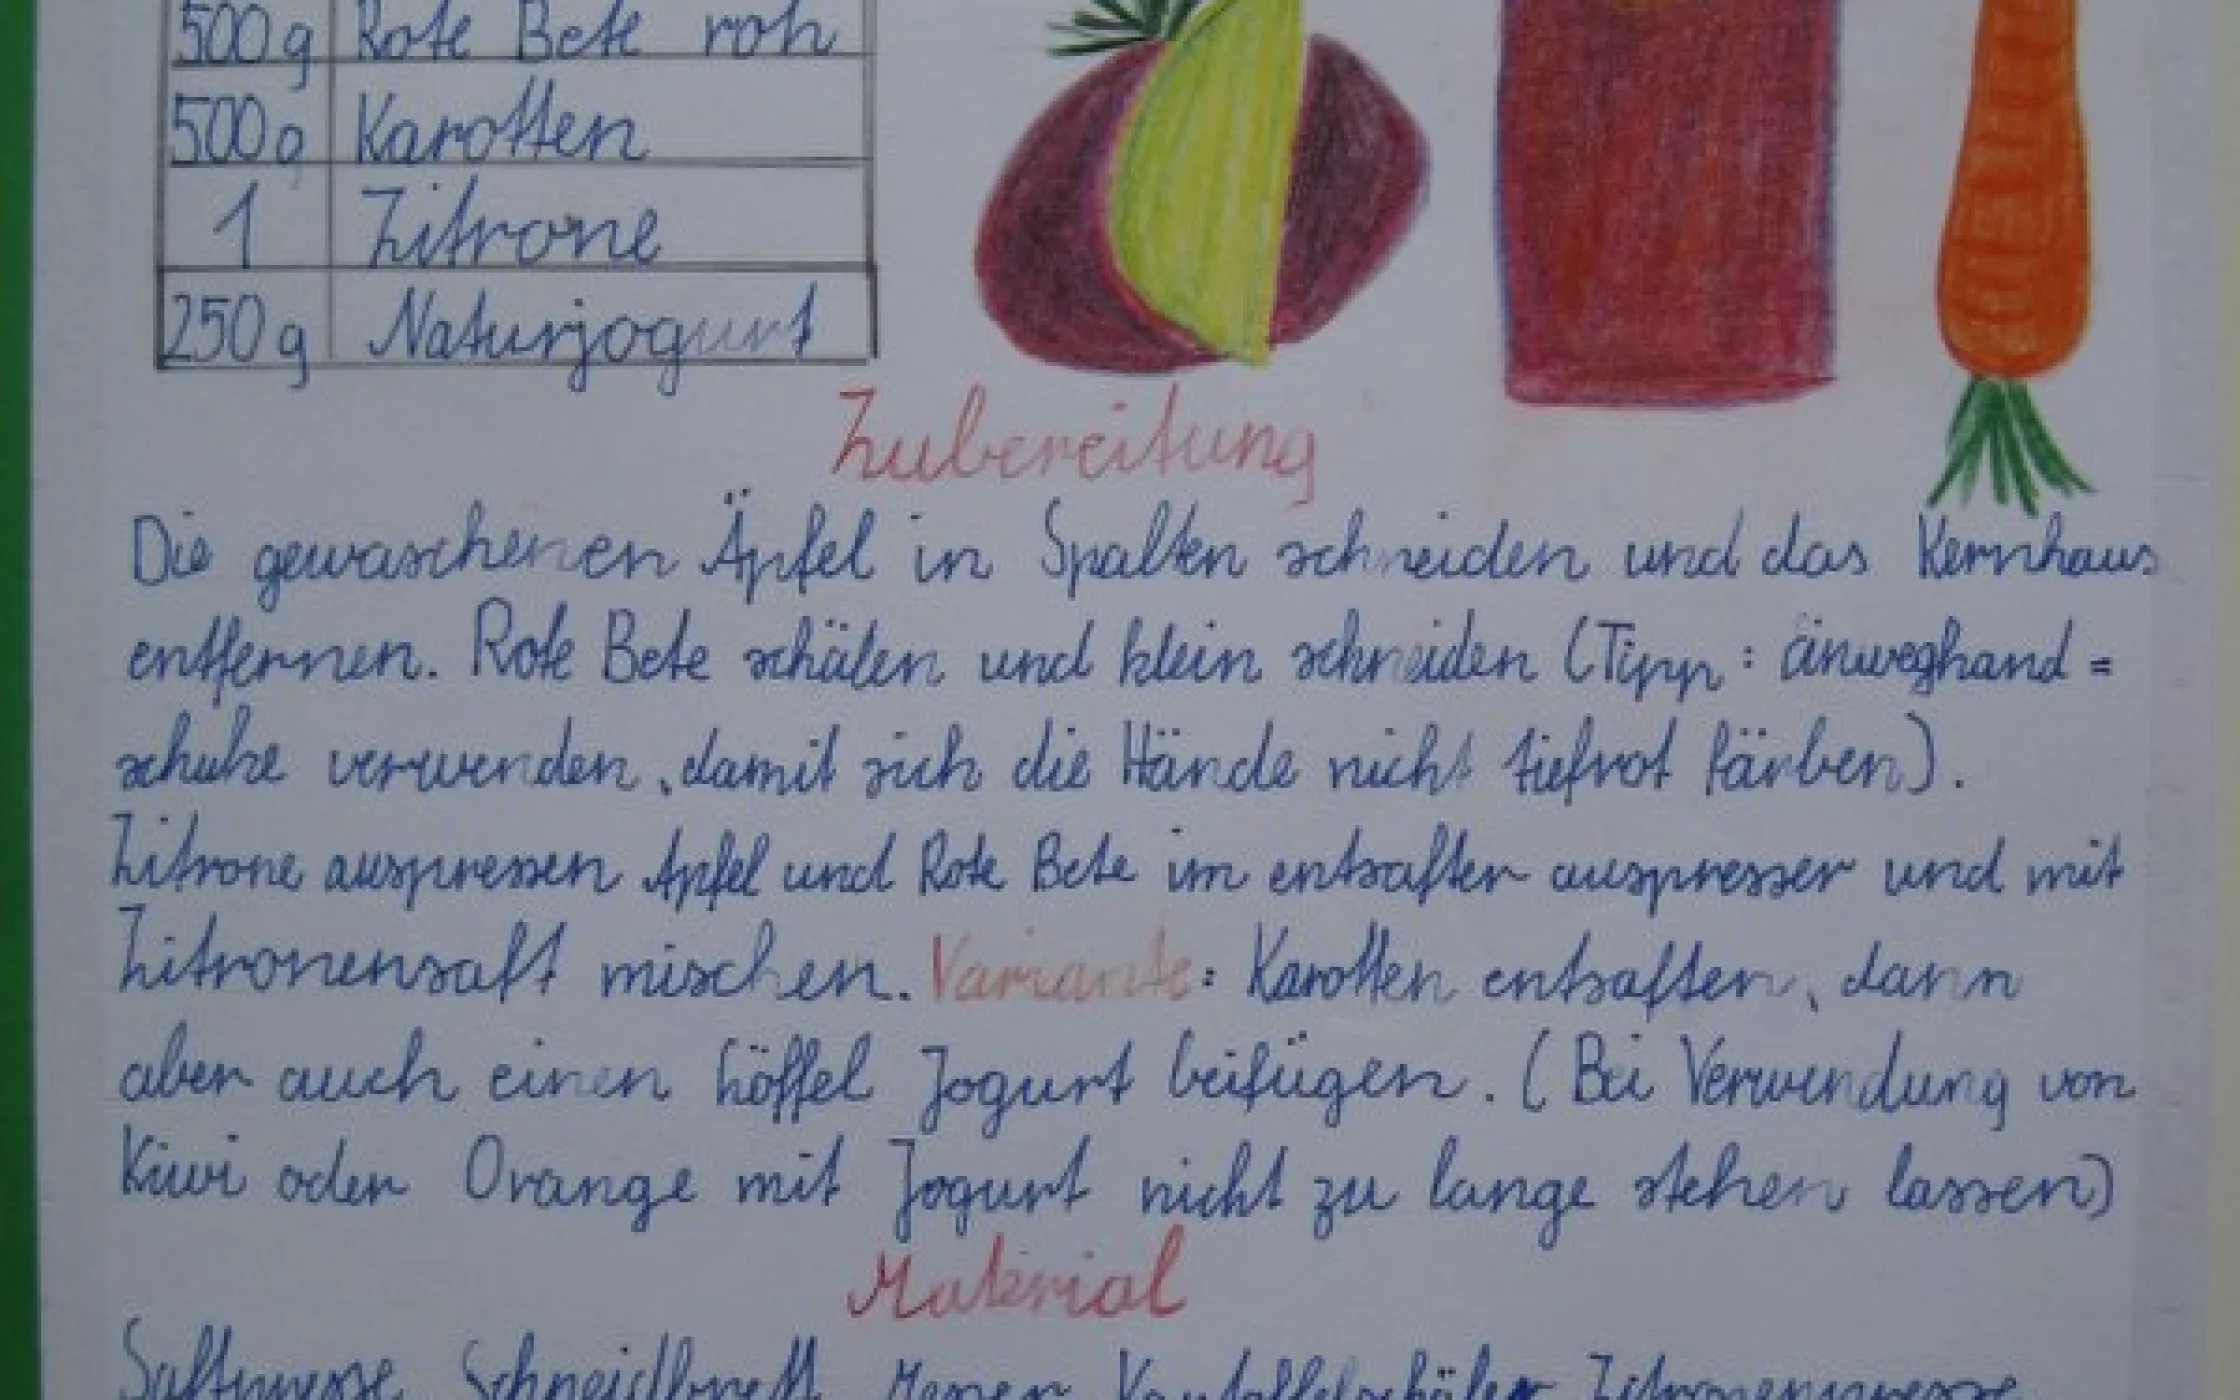 500g Rote Bete roh
500g Karotten
1 Zitrone
250g Naturjogurt
Zubereitung
Die gewaschenen Äpfel in Spalten schneiden und das Kernhaus
entfernen. Rote Bete schälen und klein schneiden (Tipp: einweghand=
schuhe verwenden, damit sich die Hände nicht tiefrot färben).
Zitrone auspressen Apfel und Rote Bete im entsafter auspresser und mit
Zitronensaft mischen. Variante: Karotten entsaften, dann
aber auch einen Löffel Jogurt beifügen. (Bei Verwendung von
Kiwi oder Orange mit Jogurt nicht zu lange stehen lassen)
Material
Saftpresse Schneidbrett Messer Kartoffelschäler Zitronenpresse